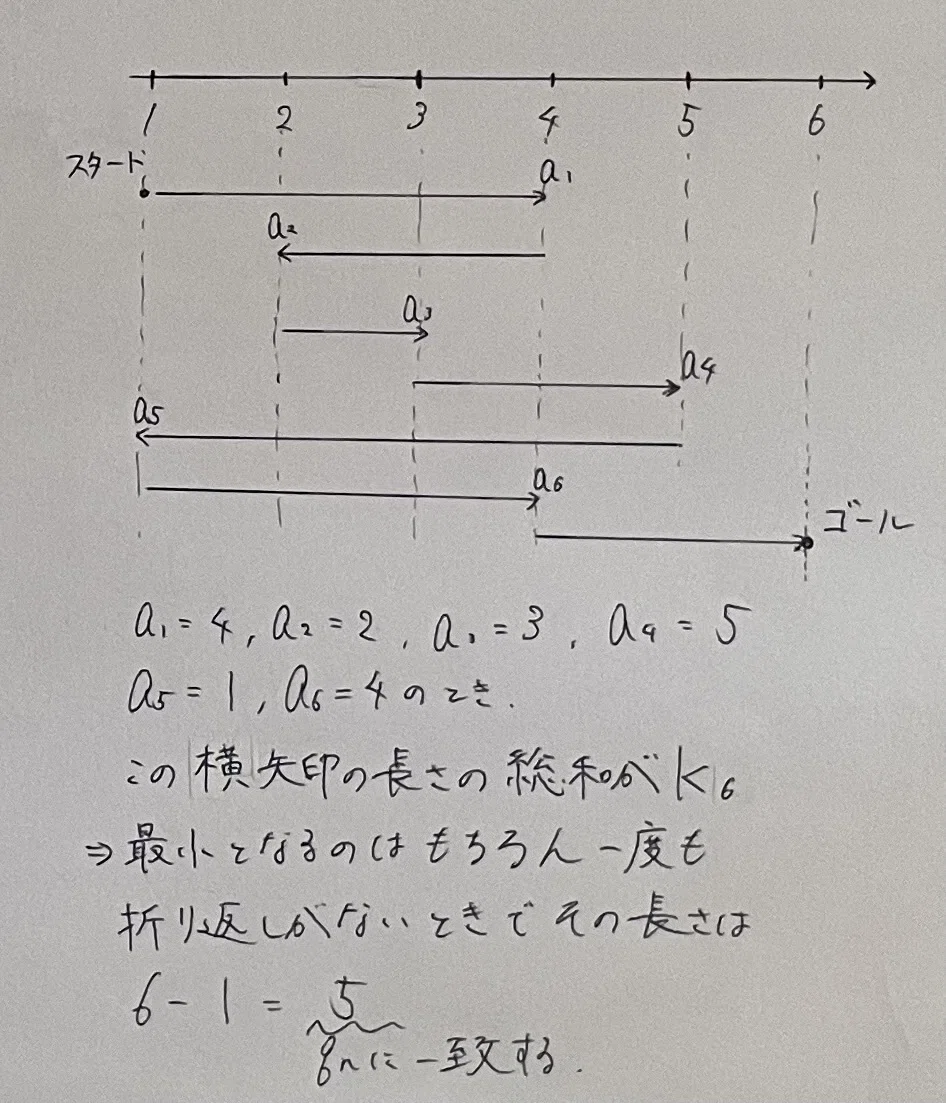 1 2 3 4 5 6
スタート
a₁
a₂
a₃
a₄
a₅
a₆
ゴール
a₁ = 4 , a₂ = 2 , a₃ = 3 , a₄ = 5
a₅ = 1 , a₆ = 4 のとき.
この横矢印の長さの総和がK₆
⇒ 最小となるのはもちろん一度も
折り返しがないときでその長さは
6 - 1 = 5
gₙに一致する.